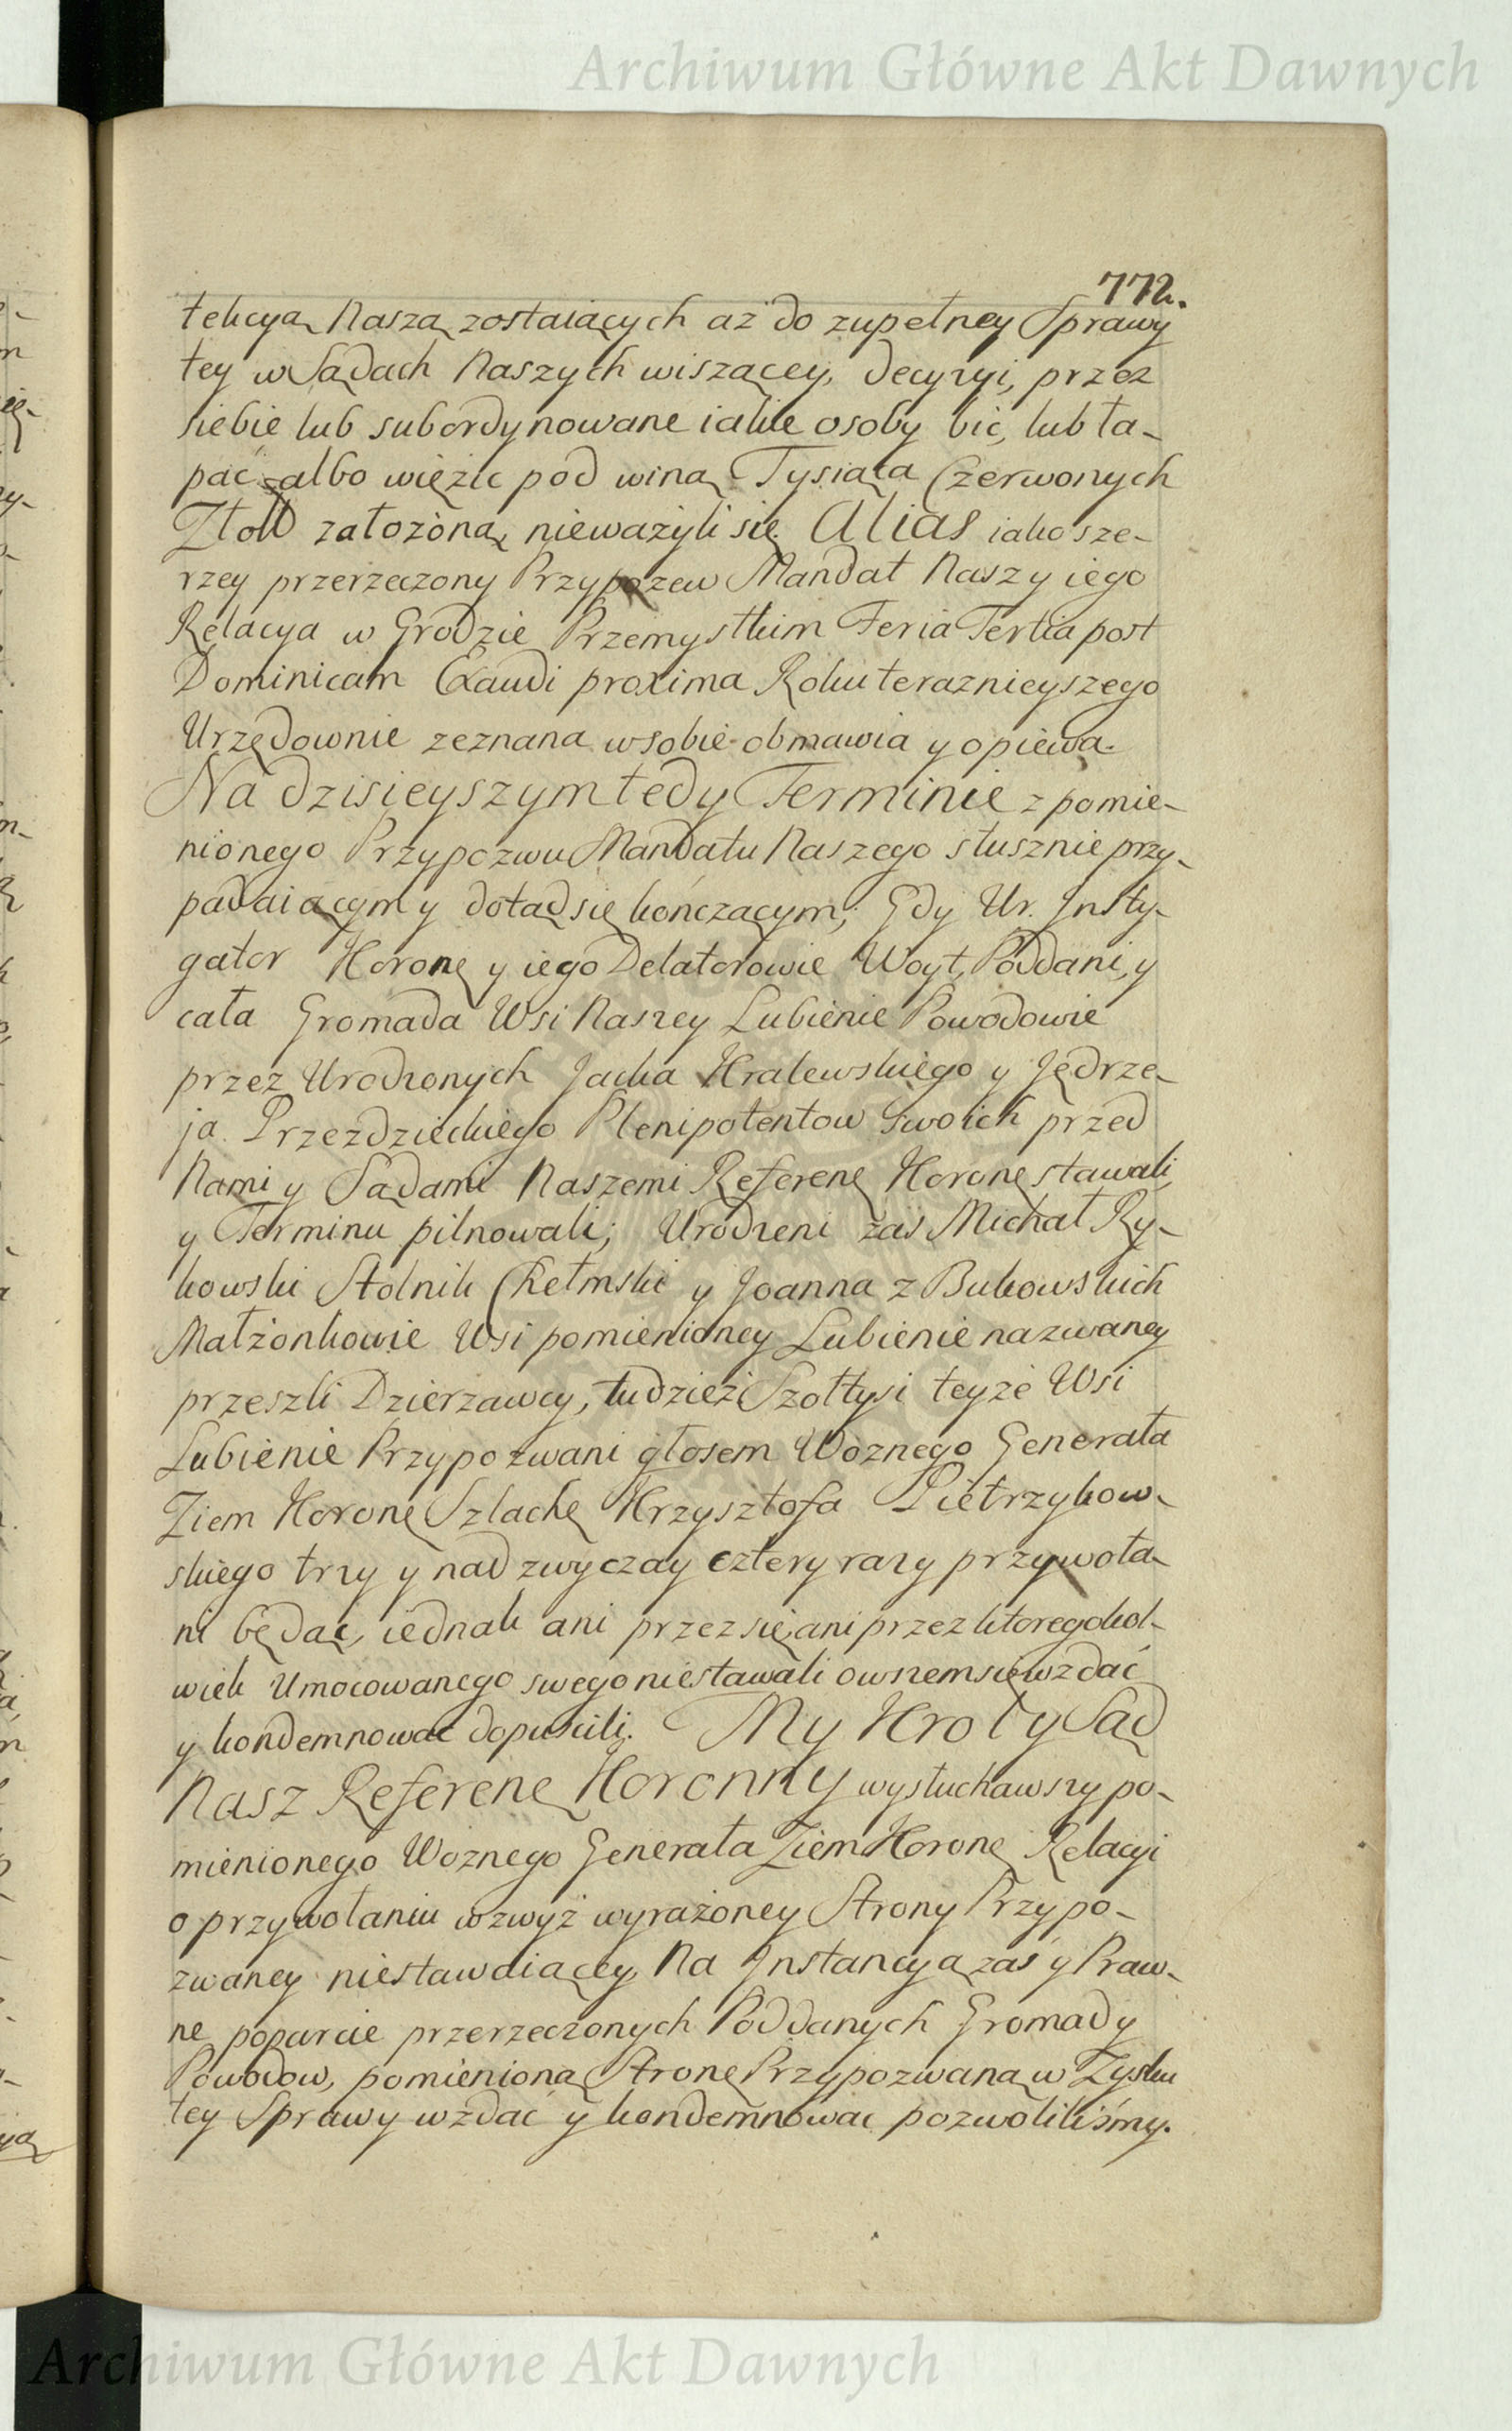 Archiwum Główne Akt Dawnych
772.
tekcyą Naszą zostaiących aż do zupełney Sprawy
tey w Sądach Naszych wiszącey, decyzyi, przez
siebie lub subordynowane iakie osoby bić, lub ła-
pać albo więzić pod winą Tysiąca Czerwonych
Złott założoną, nieważyli się. Alias iako sze-
rzey przerzeczony Przypozew Mandat Nasz y iego
Relacya w Grodzie Przemyslkim Feria Tertia post
Dominicam Exaudi proxima Roku teraznieyszego
Urzędownie zeznana w sobie obmawia y opiewa.
Na dzisieyszym tedy Terminie z pomie-
nionego Przypozwu Mandatu Naszego słusznie przy-
padaiącym y dotąd się kończącym; Gdy Ur. Insty-
gator Koronę y iego Delatorowie Woyt, Poddani, y
cała Gromada Wsi Naszey Lubienie Powodowie
przez Urodzonych Jacka Kralewskiego y Jędrze-
ja Przezdzieckiego Plenipotentow Swoich przed
Nami y Sądami Naszemi Referenę Koronę stawali,
y Terminu pilnowali; Urodzeni zaś Michał Ry-
kowski Stolnik Chełmski y Joanna z Bukowskich
Małżonkowie Wsi pomienioney Lubienie nazwaney
przeszli Dzierżawcy, tudzież Szołtysi teyże Wsi
Lubienie Przypozwani głosem Woznego Generała
Ziem Koronę Szlachę Krzysztofa Pietrzykow-
skiego trzy y nad zwyczay cztery razy przywoła-
ni będąc, iednak ani przez się, ani przez ktoregokol-
wiek Umocowanego swego niestawali owszem się wzdać
y kondemnować dopuścili. My Krol y Sąd
Nasz Referenę Koronny wysłuchawszy po-
mienionego Woznego Generała Ziem Koronę Relacyi
o przywołaniu wzwyż wyrażoney Strony Przypo-
zwaney niestawaiącey, Na Instancyą zaś y Praw-
ne poparcie przerzeczonych Poddanych Gromady
Powodow, pomienioną Stronę Przypozwaną w Zysku
tey Sprawy wzdać y kondemnować pozwoliliśmy.
Archiwum Główne Akt Dawnych